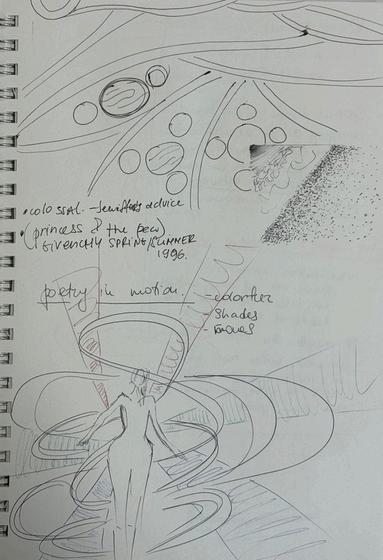 • COLOSSAL - advice
• (princess & the pea)
GIVENCHY SPRING/SUMMER
1996.
poetry in motion.
- colorful
- shades